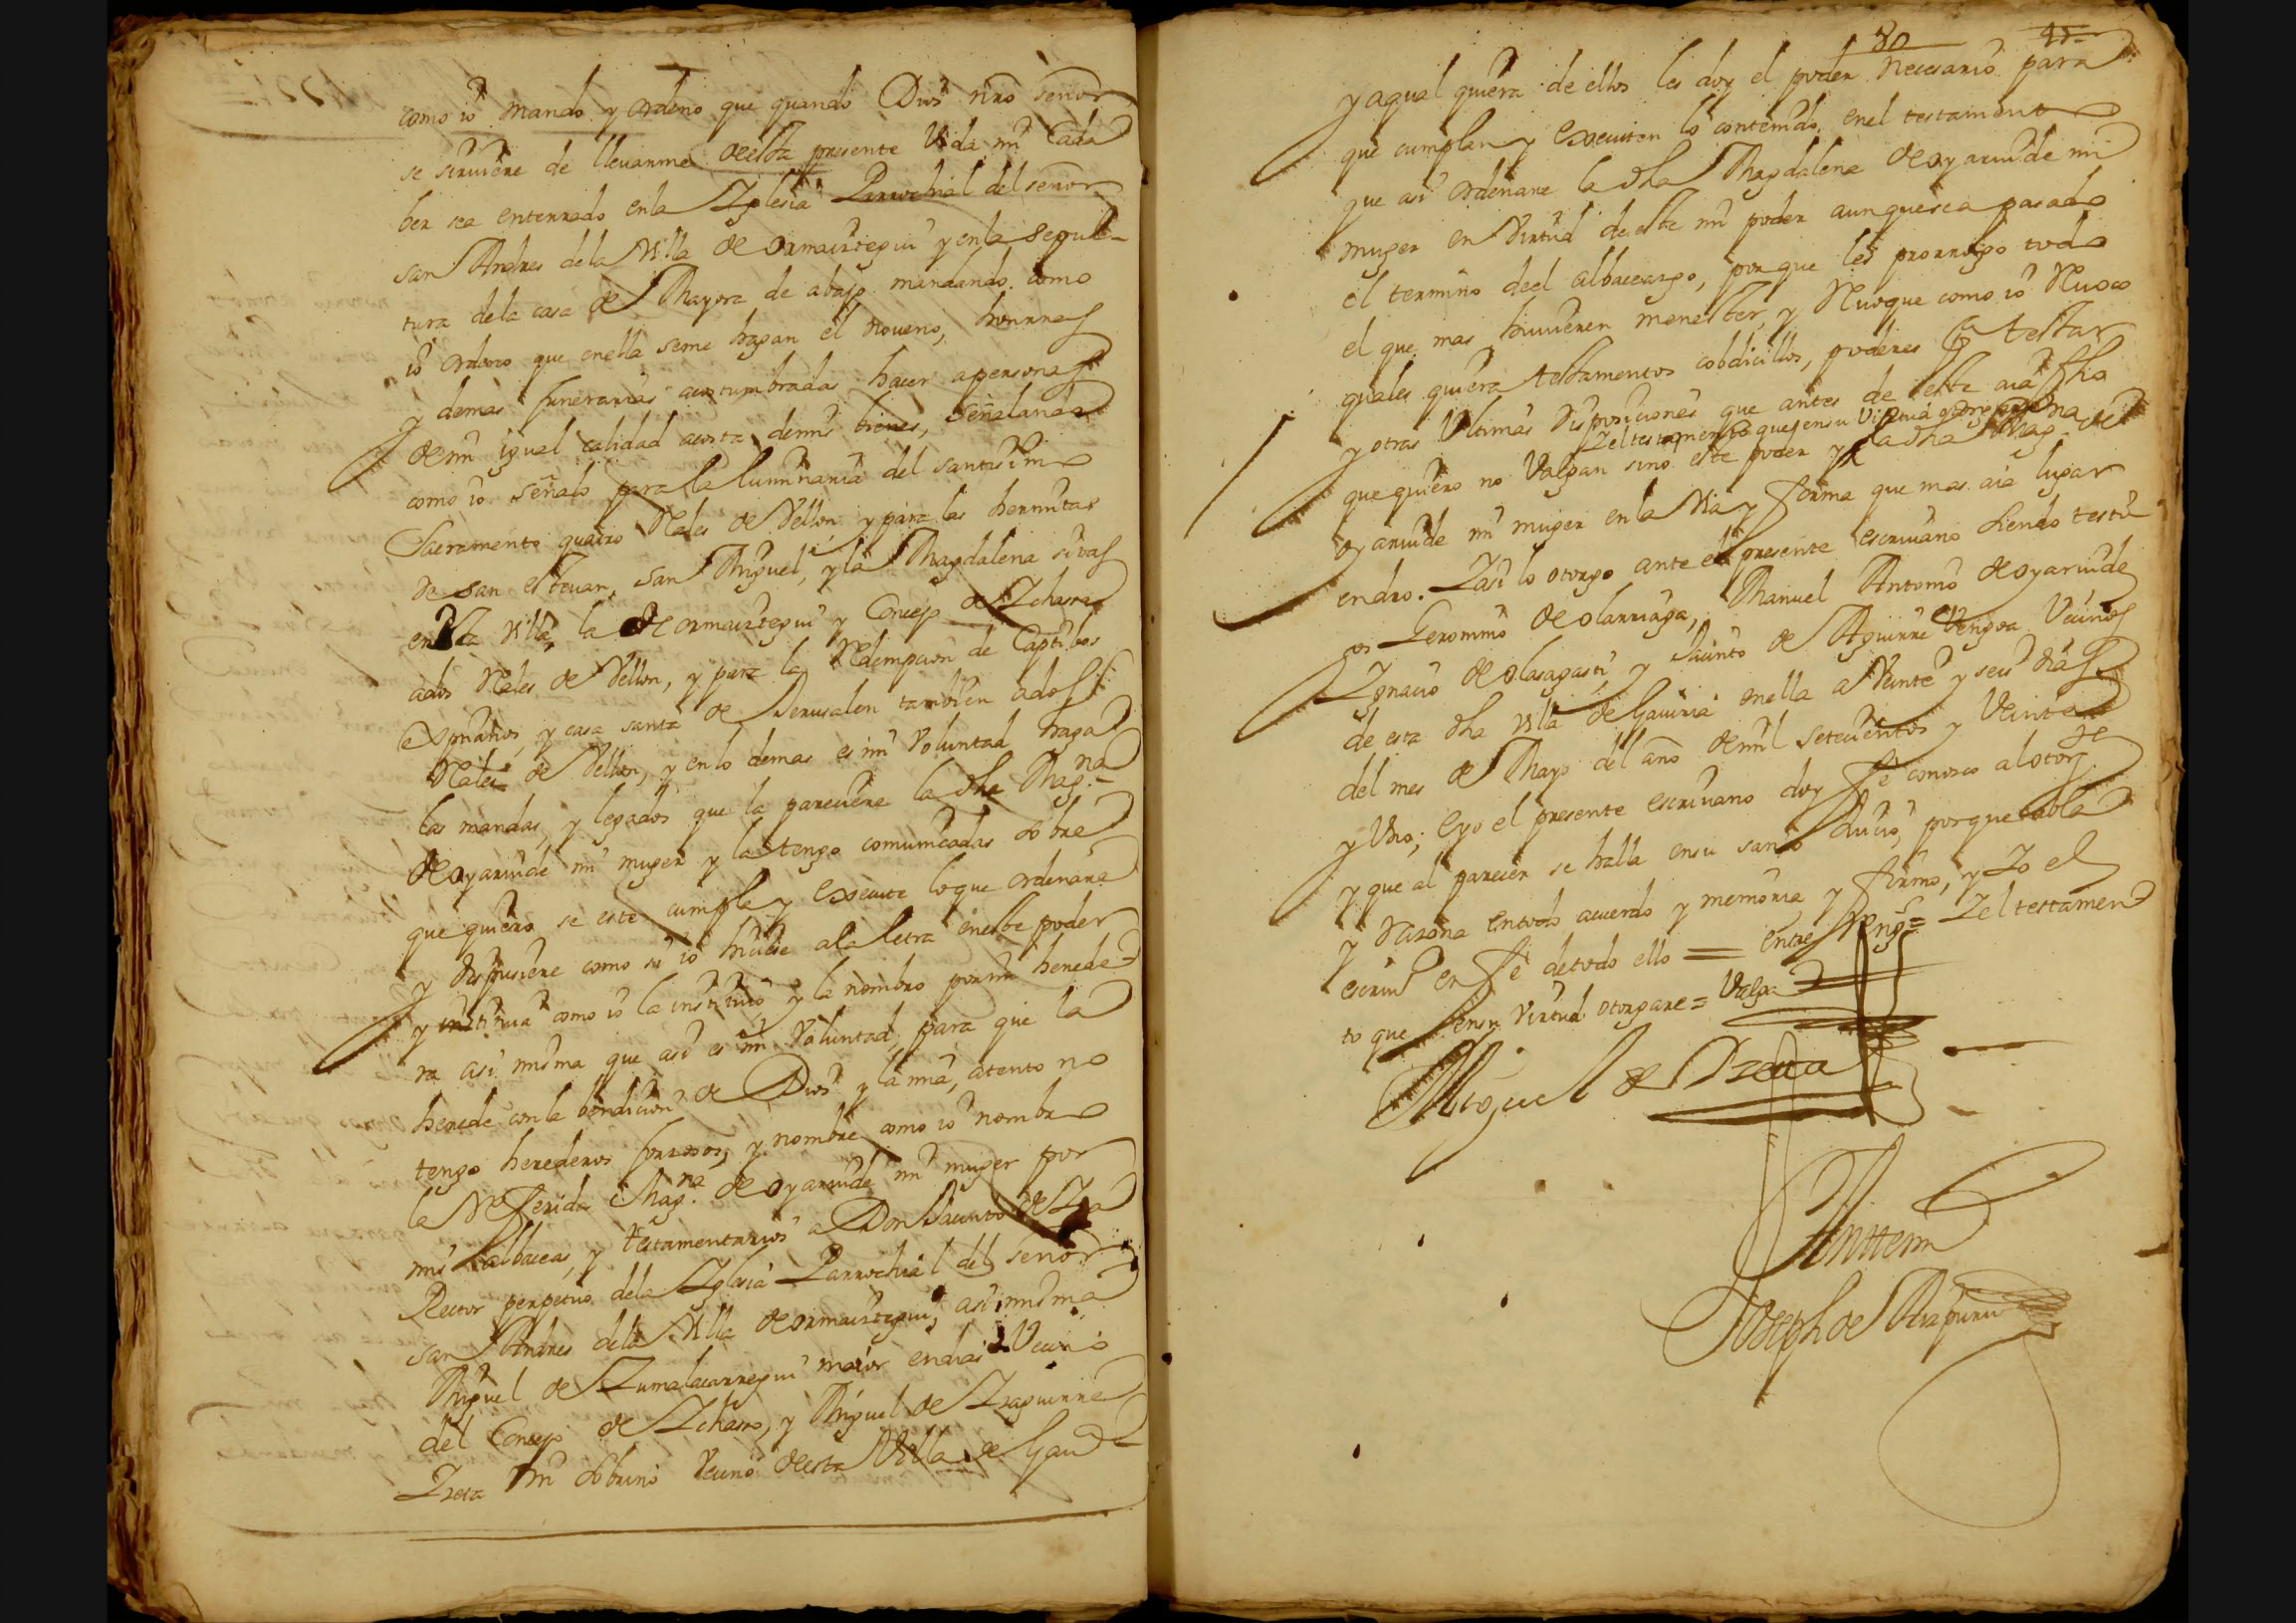 como io mando y ordeno que quando Dios nro señor
se sirviere de llevarme de esta presente vida mi Cada
ber sea enterrado en la Yglesia Parrochial del señor
san Andres de la Villa de ormaiztegui y en la sepul-
tura de la casa de Mayora de abajo mandando como
io ordeno que en ella se me hagan el noveno, honrras
y demas funerarias acostumbradas hacer a personas
de mi igual calidad acosta de mis bienes, señalando
como io señalo para la luminaria del santisimo
Sacramento quatro Reales de Vellon, y para las hermitas
de san estevan, san Miguel, y la Magdalena sitas
en esta villa, la de ormaiztegui y Concejo de Ychaso
ados Reales de Vellon, y para la Redempcion de Captibos
Xpnãnos, y casa santa de Jerusalen tambien ados
Reales de Vellon, y en lo demas es mi voluntad haga
las mandas, y legados que la pareciere la dha Mag.na
de oyarvide mi muger y la tengo comunicadas sobre
que quiero se este cumpla y execute lo que ordenare
y dispusiere como si io hiciese ala letra en este poder
y instituia como io la instituio y la nombro por mi herede
ra asi misma que asi es mi Voluntad, para que la
herede con la bendicion de Dios y la mia, atento no
tengo herederos forzosos, y nombre como io nombro
la Referida Mag.na de oyarvide mi muger por
mis albaceas, y testamentarios a Don Jacinto de Yza
Rector perpetuo de la Yglesia Parrochial del señor
san Andres de la Villa de ormaiztegui, asi misma
Miguel de Zumalacarregui maior en dias Vecino
del Concejo de Ychaso, y Miguel de Yzaguirre
Yzeta mi sobrino Vecino de esta Villa de Gavi
80
y a qual quiera de ellos les doy el poder necesario para
que cumplan y executen lo contenido en el testamento
que asi ordenare la dha Magdalena de oyarvide mi
muger en Virtud de este mi poder aunque sea pasado
el termino de el albaceazgo, porque les prorrogo todo
el que mas huvieren menester, y Revoque como io Revoco
quales quiera testamentos cobdicillos, poderes pa testar
y otras Ultimas Disposiciones que antes de este aia fho
Y el testamento que en su Virtud otorgare
que quiero no Valgan sino este poder y la dha Mag.na de
oyarvide mi muger en la Via y forma que mas aia lugar
en dro. Y asi lo otorgo ante el presente escrivano siendo testi
gos Geronimo de olarriaga, Manuel Antonio de oyarvide
Ygnacio de olasagasti, y Jacinto de Aguirre Vengoa Vecinos
de esta dha villa de Gaviria en ella a Veinte y seis dias
del mes de Mayo del año de mil setecientos y Veinte
y Uno; e yo el presente escrivano doy fe conosco al otorg.te
y que al parecer se halla en su sano Juicio, porque abla
y Razona en todo acuerdo y memoria y firmo, y Yo el
escriv.o en fe de todo ello = entre Reng.s = Y el testamen
to que en su Virtud otorgare = Valga
Miguel de Yzeta
Antte mi
Joseph de Aizpuru